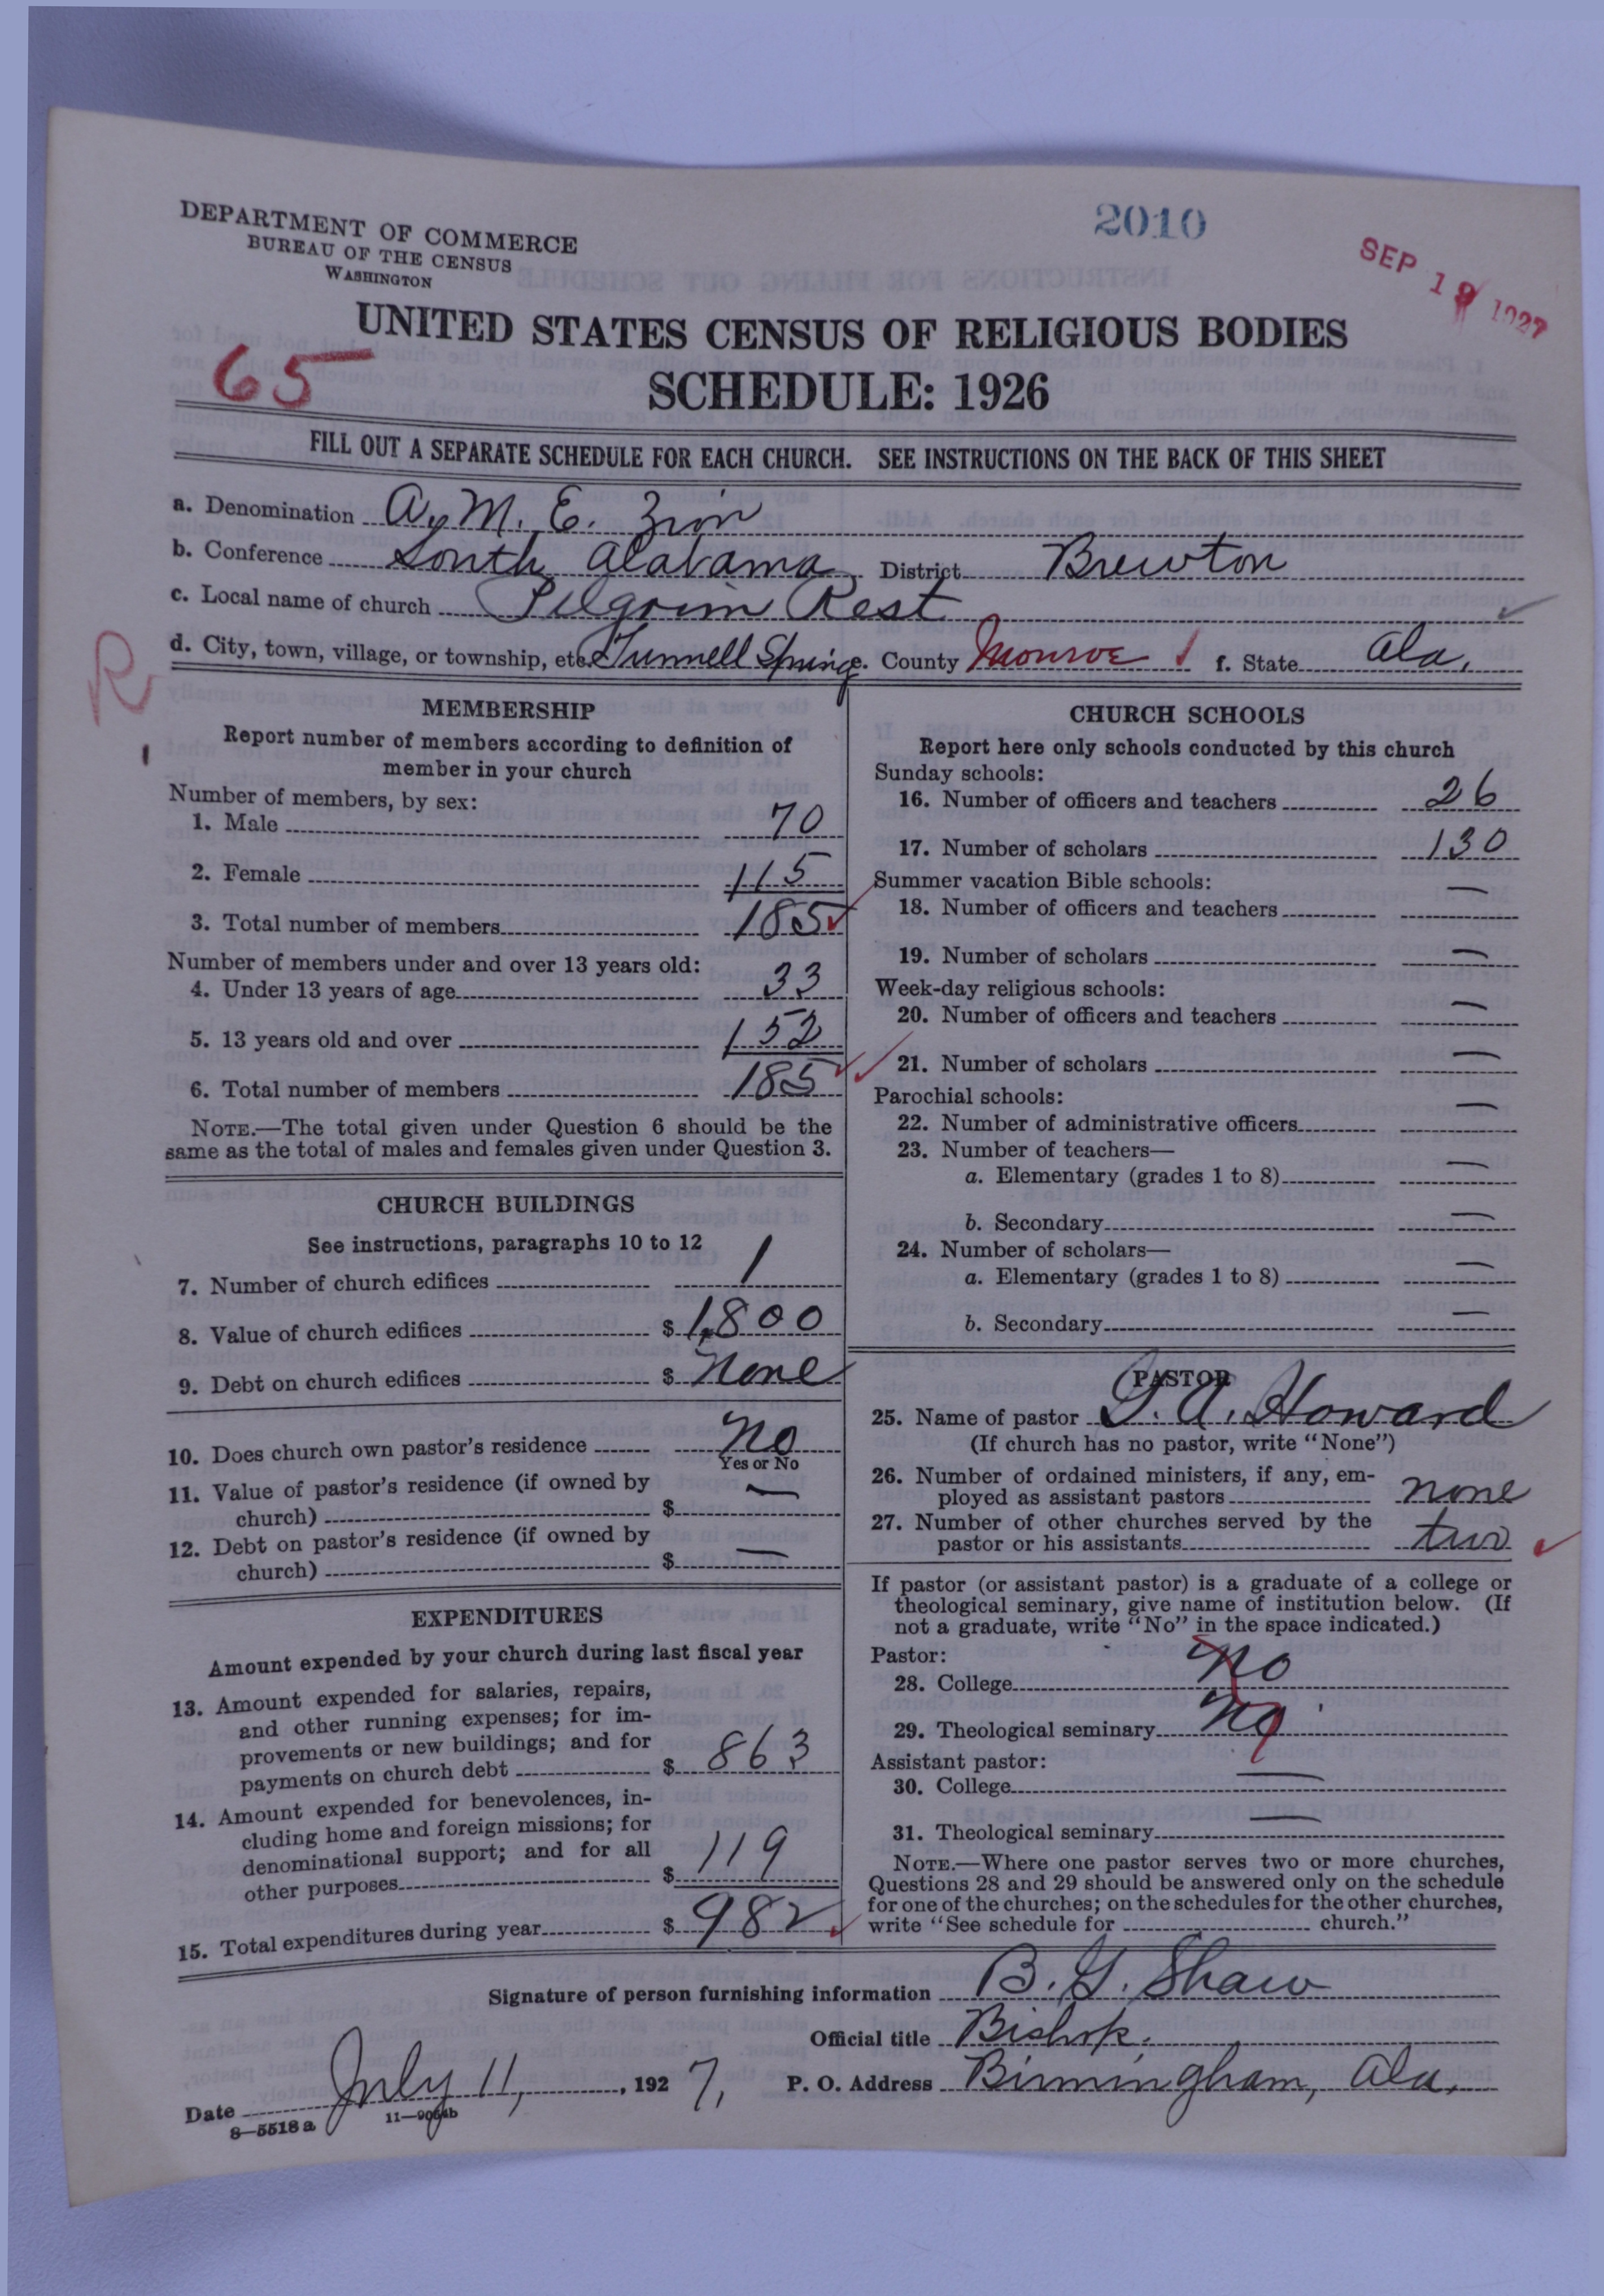 DEPARTMENT OF COMMERCE
BUREAU OF THE CENSUS
WASHINGTON
2010
SEP 19 1927
UNITED STATES CENSUS OF RELIGIOUS BODIES
65
SCHEDULE: 1926
FILL OUT A SEPARATE SCHEDULE FOR EACH CHURCH. SEE INSTRUCTIONS ON THE BACK OF THIS SHEET
a. Denomination A. M. E. Zion
b. Conference South Alabama District Brewton
c. Local name of church Pilgrim Rest
d. City, town, village, or township, etc. Tunnell Springs e. County Monroe f. State Ala.
R
MEMBERSHIP
Report number of members according to definition of
member in your church
Number of members, by sex:
1. Male 70
2. Female 115
3. Total number of members 185
Number of members under and over 13 years old:
4. Under 13 years of age 33
5. 13 years old and over 152
6. Total number of members 185
NOTE.—The total given under Question 6 should be the
same as the total of males and females given under Question 3.
CHURCH BUILDINGS
See instructions, paragraphs 10 to 12
7. Number of church edifices 1
8. Value of church edifices $ 1,800
9. Debt on church edifices $ None
10. Does church own pastor's residence No
Yes or No
11. Value of pastor's residence (if owned by
church) $ —
12. Debt on pastor's residence (if owned by
church) $ —
EXPENDITURES
Amount expended by your church during last fiscal year
13. Amount expended for salaries, repairs,
and other running expenses; for im-
provements or new buildings; and for
payments on church debt $ 863
14. Amount expended for benevolences, in-
cluding home and foreign missions; for
denominational support; and for all
other purposes $ 119
15. Total expenditures during year $ 982
CHURCH SCHOOLS
Report here only schools conducted by this church
Sunday schools:
16. Number of officers and teachers 26
17. Number of scholars 130
Summer vacation Bible schools:
18. Number of officers and teachers —
19. Number of scholars —
Week-day religious schools:
20. Number of officers and teachers —
21. Number of scholars —
Parochial schools:
22. Number of administrative officers —
23. Number of teachers—
a. Elementary (grades 1 to 8) —
b. Secondary —
24. Number of scholars—
a. Elementary (grades 1 to 8) —
b. Secondary —
PASTOR
25. Name of pastor G. A. Howard
(If church has no pastor, write "None")
26. Number of ordained ministers, if any, em-
ployed as assistant pastors none
27. Number of other churches served by the
pastor or his assistants two
If pastor (or assistant pastor) is a graduate of a college or
theological seminary, give name of institution below. (If
not a graduate, write "No" in the space indicated.)
Pastor:
28. College No
29. Theological seminary No
Assistant pastor:
30. College —
31. Theological seminary —
NOTE.—Where one pastor serves two or more churches,
Questions 28 and 29 should be answered only on the schedule
for one of the churches; on the schedules for the other churches,
write "See schedule for church."
Signature of person furnishing information B. G. Shaw
Official title Bishop.
Date July 11, 1927, P. O. Address Birmingham, Ala.
8—5518a 11—9064b